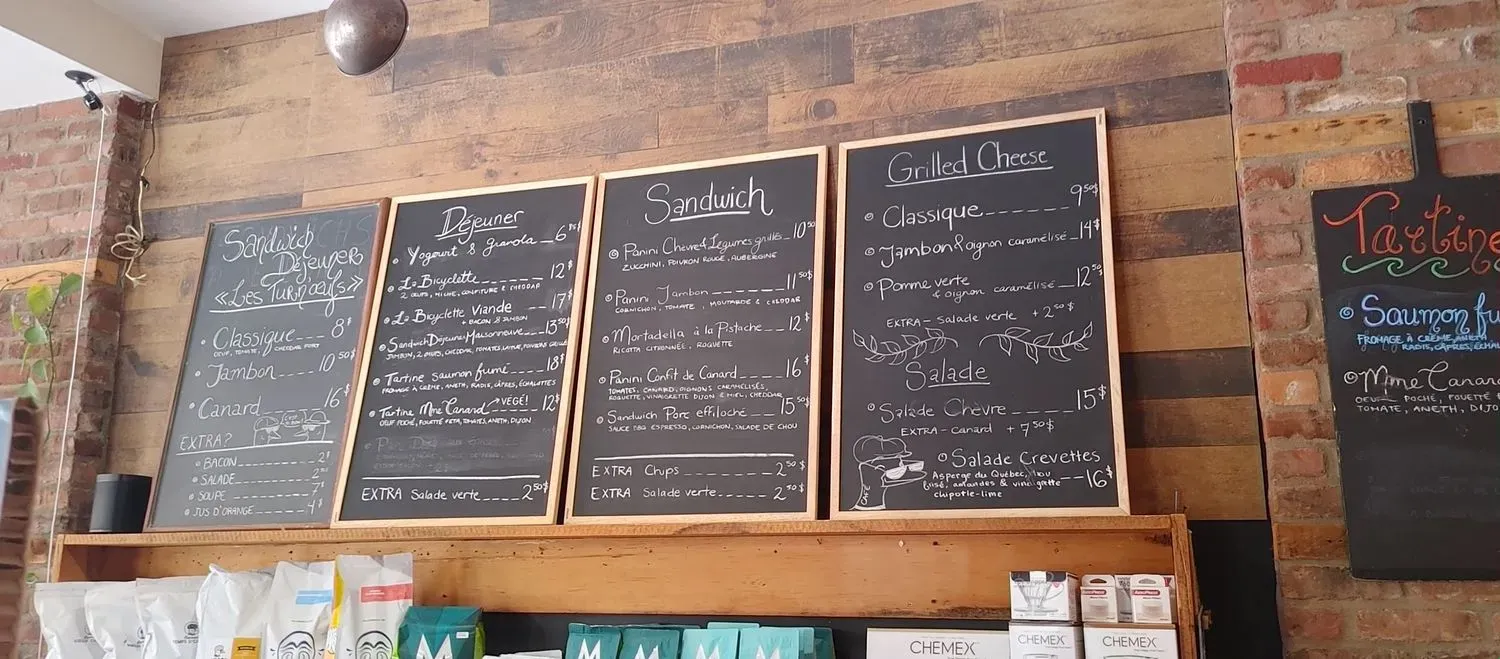 Sandwich
Déjeuner
«Les Turn'oeufs»
Classique --- 8$
OEUF, TOMATE, CHEDDAR FORT
Jambon ---- 10 50$
Canard ---- 16$
EXTRA?
BACON ---- 2$
SALADE ---- 2
SOUPE ---- 7$
JUS D'ORANGE ---- 4$
Déjeuner
Yogourt & granola _ 6
La Bicyclette ------ 12$
2 OEUFS, MICHE, CONFITURE & CHEDDAR
La Bicyclette Viande ---- 17$
+ BACON & JAMBON
Sandwich Déjeuner Maisonneuve --- 13 50$
JAMBON, 2 OEUFS, CHEDDAR, TOMATES, LAITUE, POIVRONS GRILLÉS
Tartine saumon fumé ---- 18$
FROMAGE À CRÈME, ANETH, RADIS, CÂPRES, ÉCHALOTTES
Tartine Mme Canard VÉGÉ! -- 12$
OEUF POCHÉ, FOUETTÉ FETA, TOMATES, ANETH, DIJON
EXTRA Salade verte ---- 2 50$
Sandwich
Panini Chèvre & Légumes grillés _ 10 50
ZUCCHINI, POIVRON ROUGE, AUBERGINE
Panini Jambon ------- 11 50$
CORNICHON, TOMATE, MOUTARDE & CHEDDAR
Mortadella à la Pistache --- 12$
RICOTTA CITRONNÉE, ROQUETTE
Panini Confit de Canard ---- 16$
TOMATES, CANARD, OIGNONS CARAMÉLISÉS,
ROQUETTE, VINAIGRETTE DIJON & MIEL, CHEDDAR
Sandwich Porc effiloché --- 15 50$
SAUCE BBQ ESPRESSO, CORNICHON, SALADE DE CHOU
EXTRA Chips ------- 2 50$
EXTRA Salade verte ----- 2 50$
Grilled Cheese
Classique ------- 9 50$
Jambon & oignon caramélisé _ 14$
Pomme verte --- 12 50$
& oignon caramélisé
EXTRA - Salade verte + 2 50$
Salade
Salade Chèvre ---- 15$
EXTRA - canard + 7 50$
Salade Crevettes
Asperge du Québec,
amandes & vinaigrette -- 16$
chipotle-lime
CAFÉ
Tartine
Saumon fu
FROMAGE À CRÈME, ANETH,
RADIS, CÂPRES, ÉCHAL
Mme Canard
OEUF POCHÉ, FOUETTÉ
TOMATE, ANETH, DIJO
CHEMEX
CHEMEX
CHEMEX